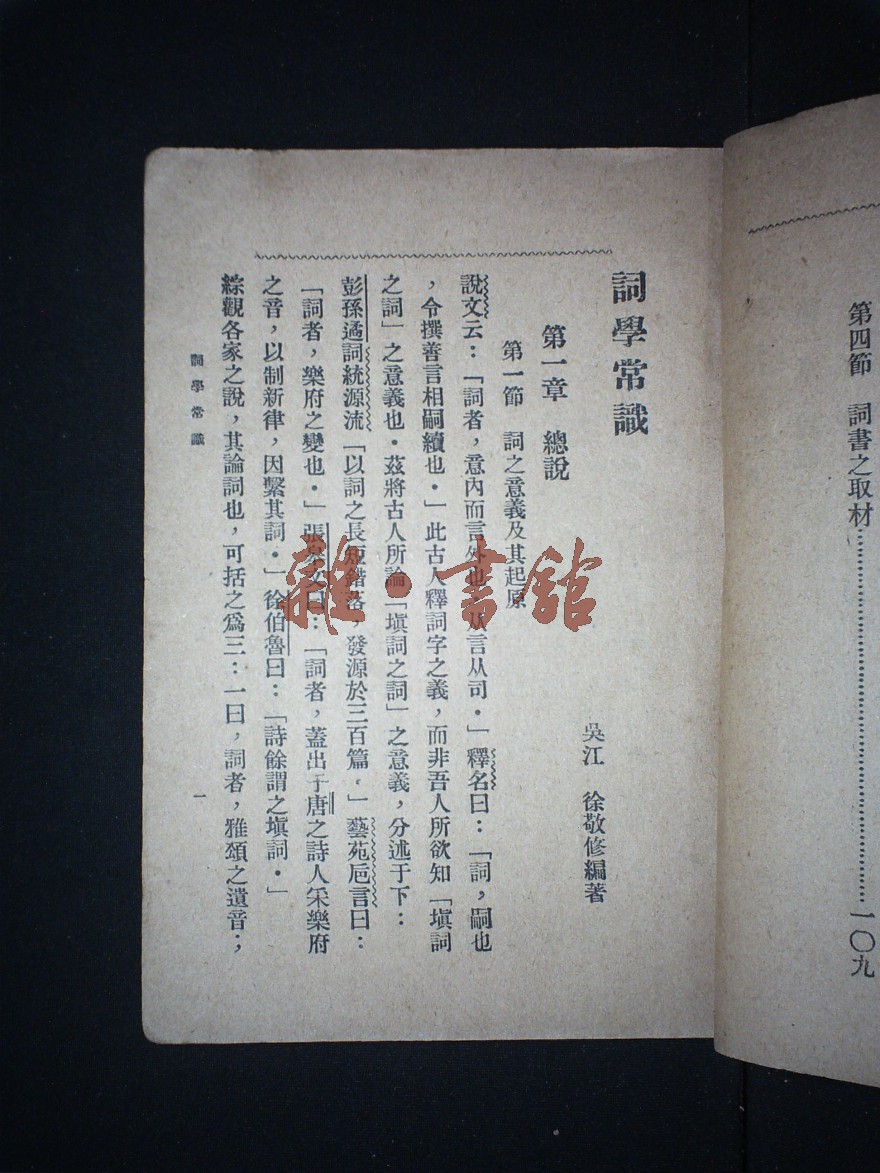 第四節　詞書之取材……………………一〇九
詞學常識
吳江　徐敬修編著
第一章　總說
第一節　詞之意義及其起原
說文云：「詞者，意內而言外也，从言从司．」釋名曰：「詞，嗣也
，令撰善言相嗣續也．」此古人釋詞字之義，而非吾人所欲知「塡詞
之詞」之意義也．茲將古人所論「塡詞之詞」之意義，分述于下：
彭孫遹詞統源流「以詞之長短錯落，發源於三百篇．」藝苑卮言曰：
「詞者，樂府之變也．」張皋文曰：「詞者，蓋出于唐之詩人采樂府
之音，以制新律，因繫其詞．」徐伯魯曰：「詩餘謂之塡詞．」
綜觀各家之說，其論詞也，可括之爲三：一曰，詞者，雅頌之遺音；
詞學常識
一
雜·書館